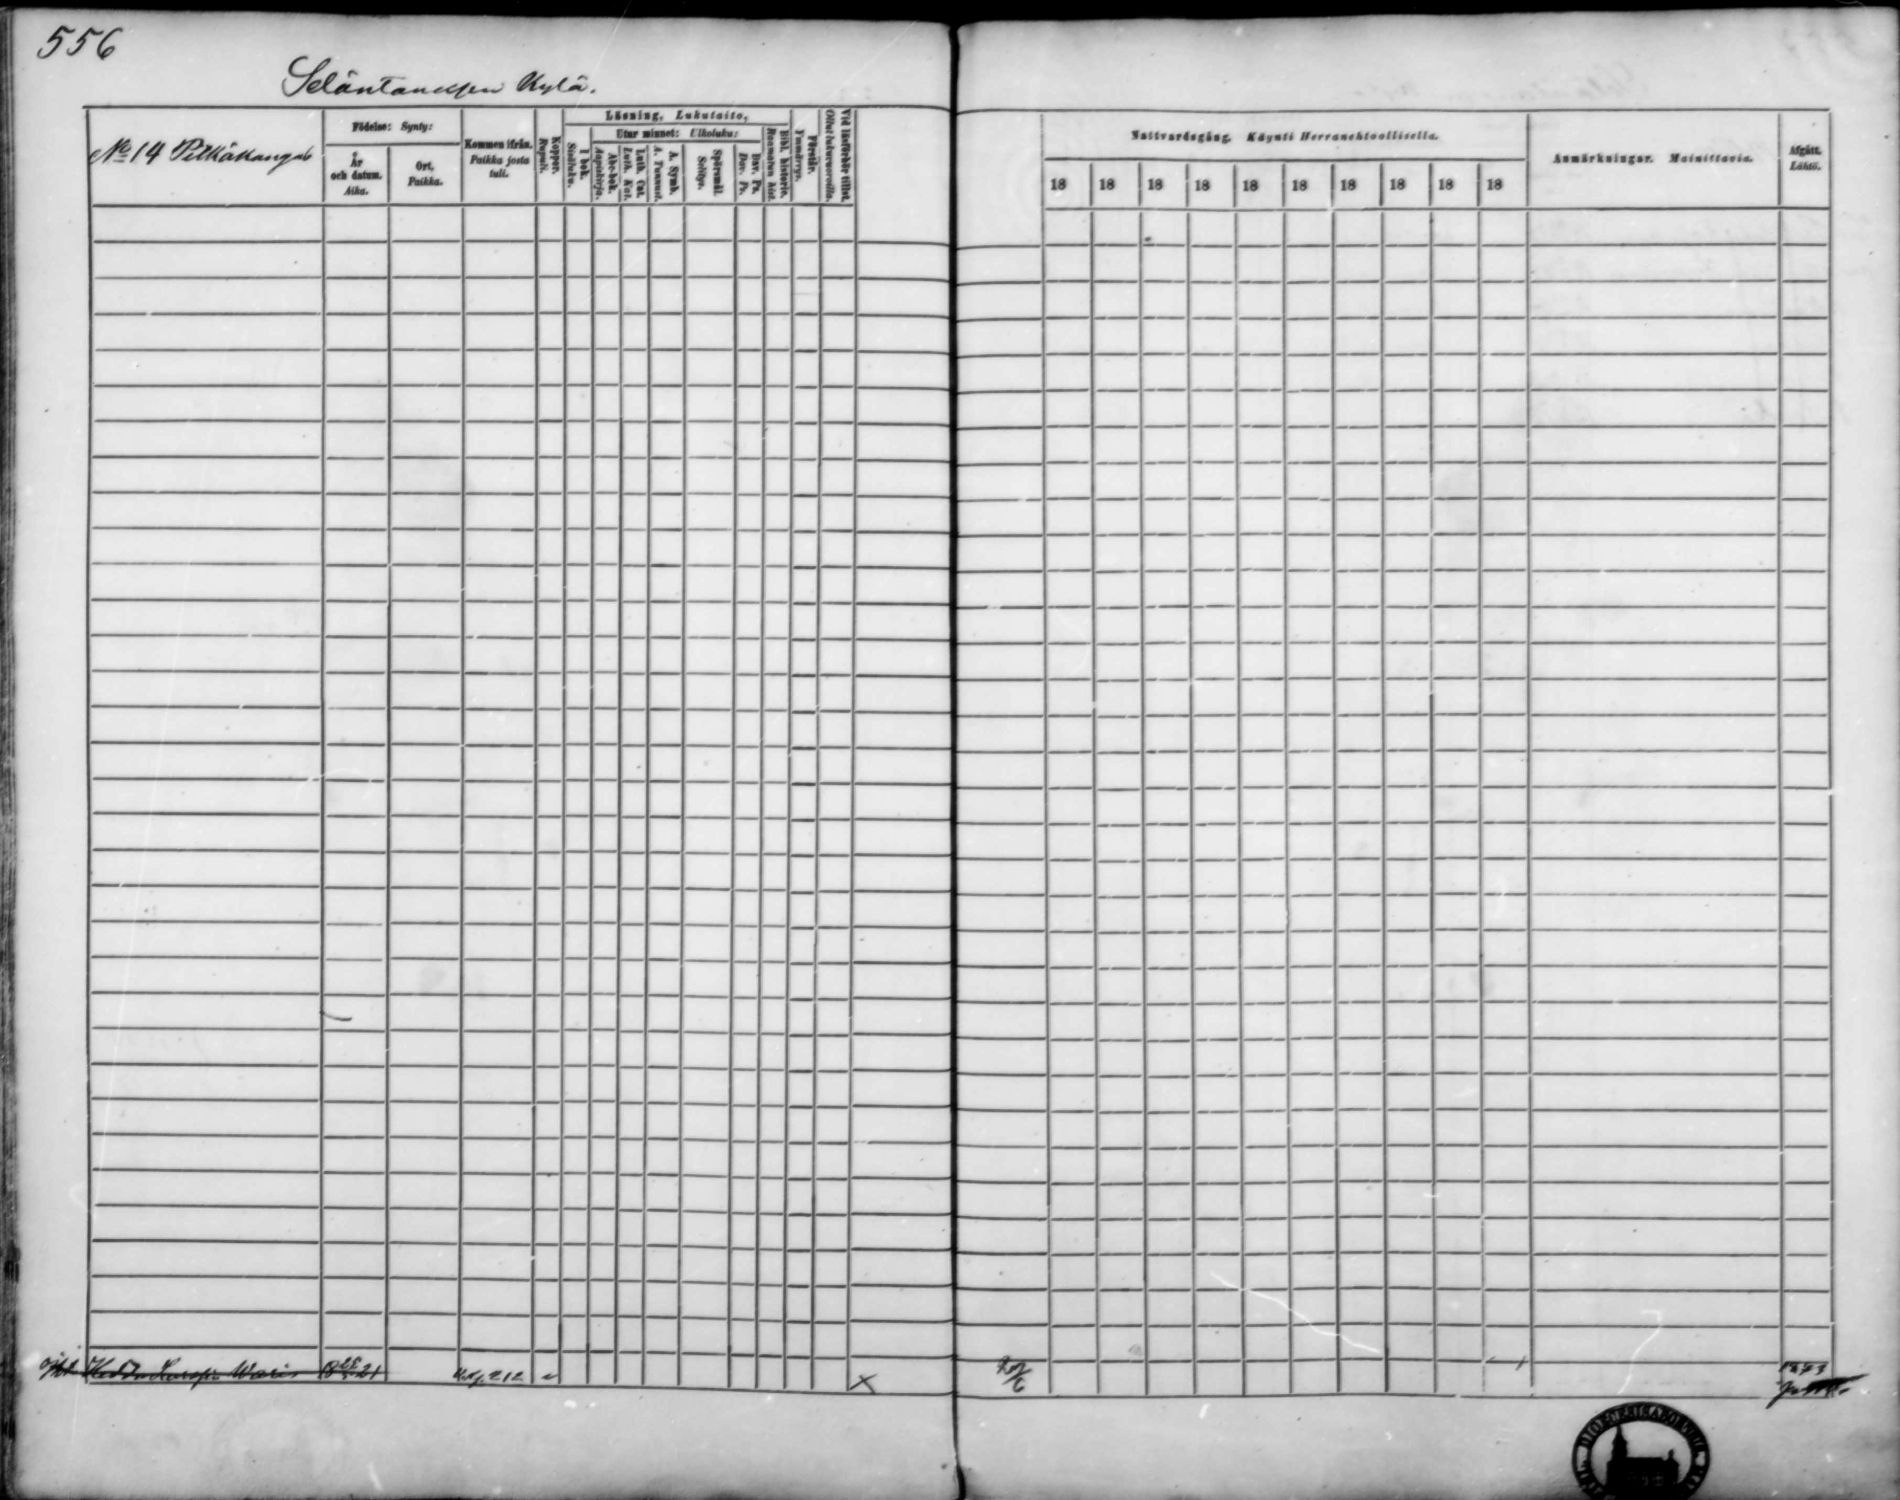 556
Seläntaussen Kylä.
No 14 Pitkäkangas
Födelse: Synty:
År och datum. Aika.
Ort. Paikka.
Kommen ifrån. Paikka josta tuli.
Koppor. Rupuli.
Läsning, Lukutaito,
I bok. Sisäluku.
Utur minnet: Ulkoluku:
Abc-bok. Aapiskirja.
Luth. Cat. Luth. Kat.
A. Symb. A. Tunnust.
Spörsmål. Selitys.
Dav. Ps. Dav. Ps.
Bibl. historie. Raamatun hist.
Förstår. Ymmärrys.
Vid läseförhör tillst. Ollut lukuvuoroilla.
Nattvardsgång. Käynti Herranehtoollisella.
18 18 18 18 18 18 18 18 18 18
Anmärkningar. Mainittavia.
Afgått. Lähtö.
212
1873